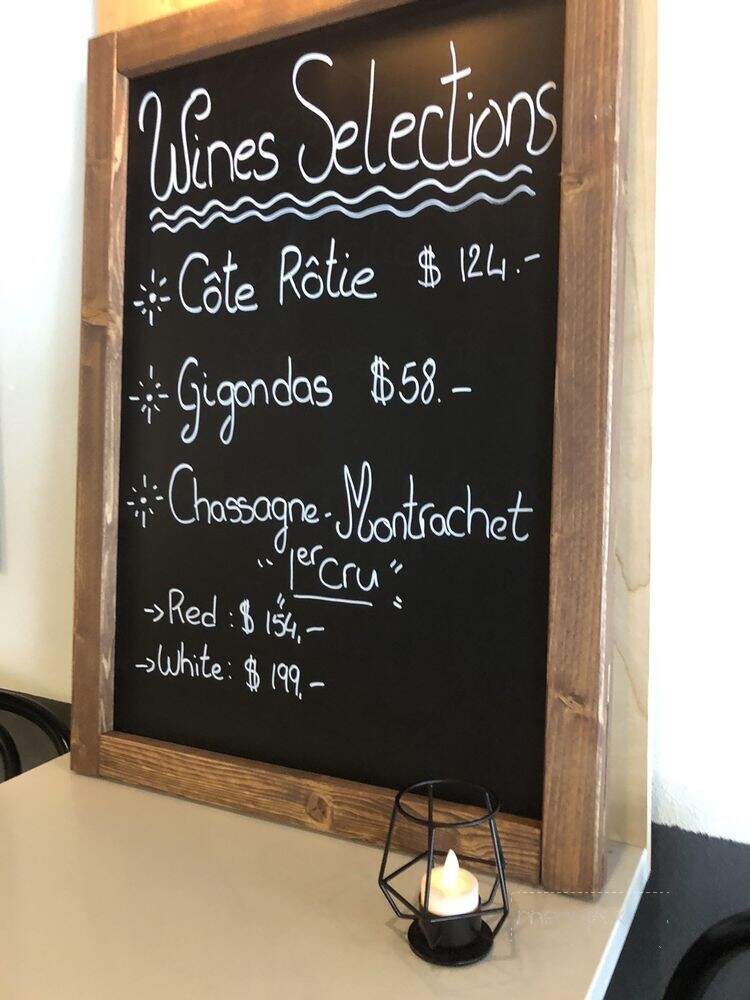 Wines Selections
Côte Rôtie $ 124.-
Gigondas $58.-
Chassagne-Montrachet
"1er Cru"
→Red : $ 154,-
→White: $ 199,-